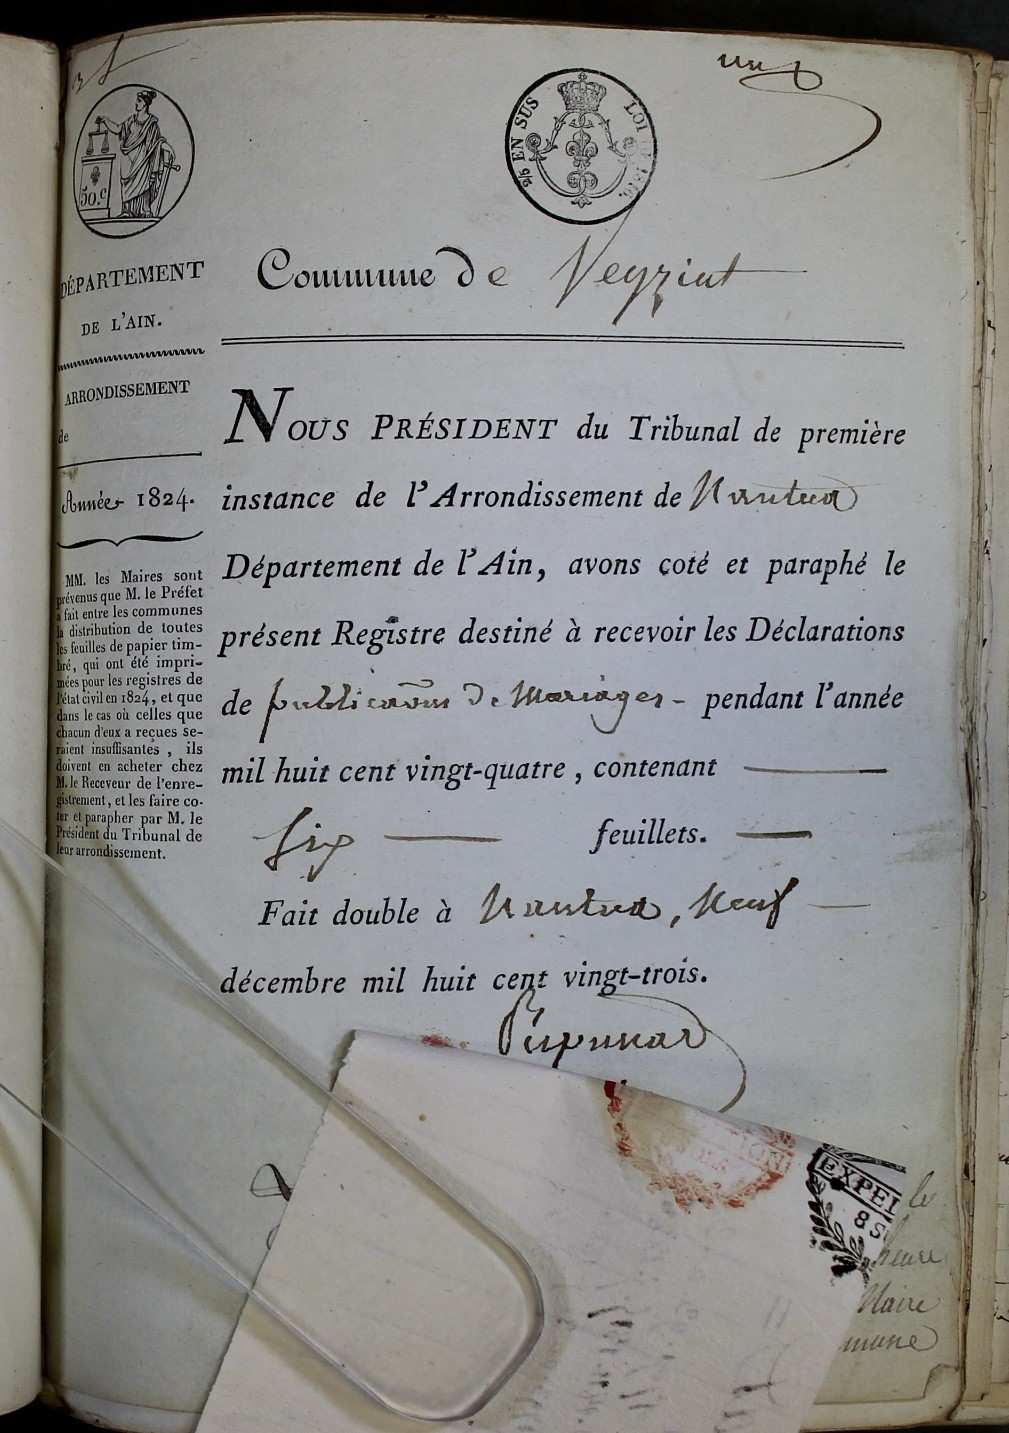 un
EN SUS
LOI DE 1816.
50.c
DÉPARTEMENT
DE L'AIN.
ARRONDISSEMENT
de
Année 1824.
MM. les Maires sont
prévenus que M. le Préfet
a fait entre les communes
la distribution de toutes
les feuilles de papier tim-
bré, qui ont été impri-
mées pour les registres de
l'état civil en 1824, et que
dans le cas où celles que
chacun d'eux a reçues se-
raient insuffisantes, ils
doivent en acheter chez
M. le Receveur de l'enre-
gistrement, et les faire co-
ter et parapher par M. le
Président du Tribunal de
leur arrondissement.
Commune de Veyziat
NOUS PRÉSIDENT du Tribunal de première
instance de l'Arrondissement de Nantua
Département de l'Ain, avons coté et paraphé le
présent Registre destiné à recevoir les Déclarations
de publications de Mariages - pendant l'année
mil huit cent vingt-quatre, contenant
Six feuillets.
Fait double à Nantua, Neuf
décembre mil huit cent vingt-trois.
ION
EXPE
le
heure
Maire
mune